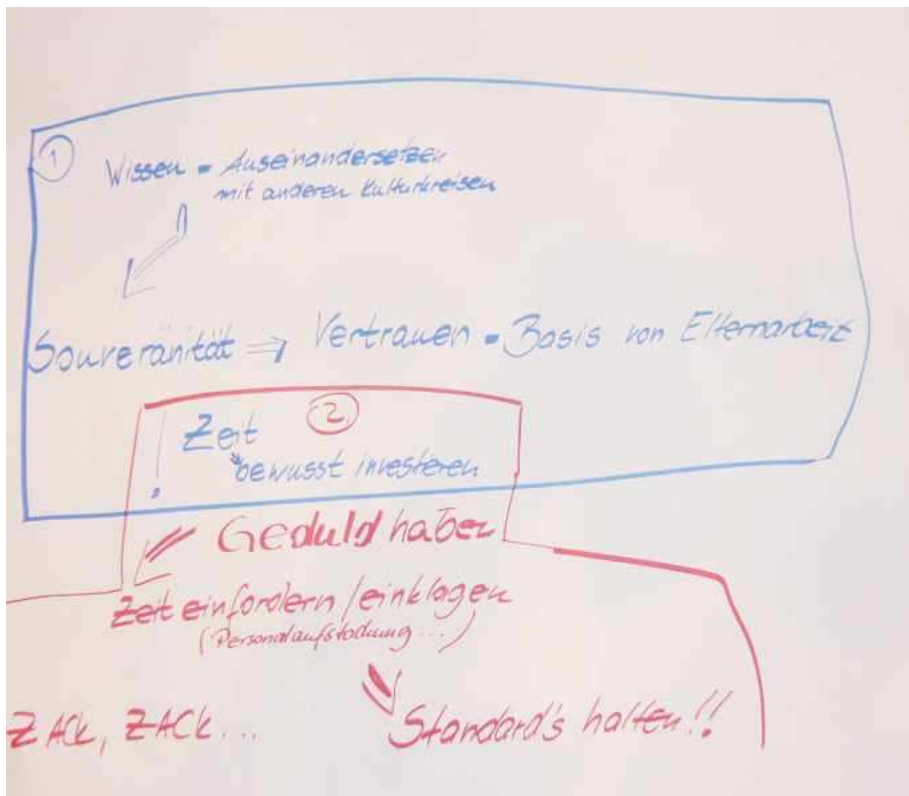 1
Wissen = Auseinandersetzen
mit anderen Kulturkreisen
Souveränität ⇒ Vertrauen = Basis von Elternarbeit
2.
! Zeit
bewusst investieren
Geduld haben
Zeit einfordern / einklagen
(Personalaufstockung ...)
ZACK, ZACK ...
Standard's halten!!